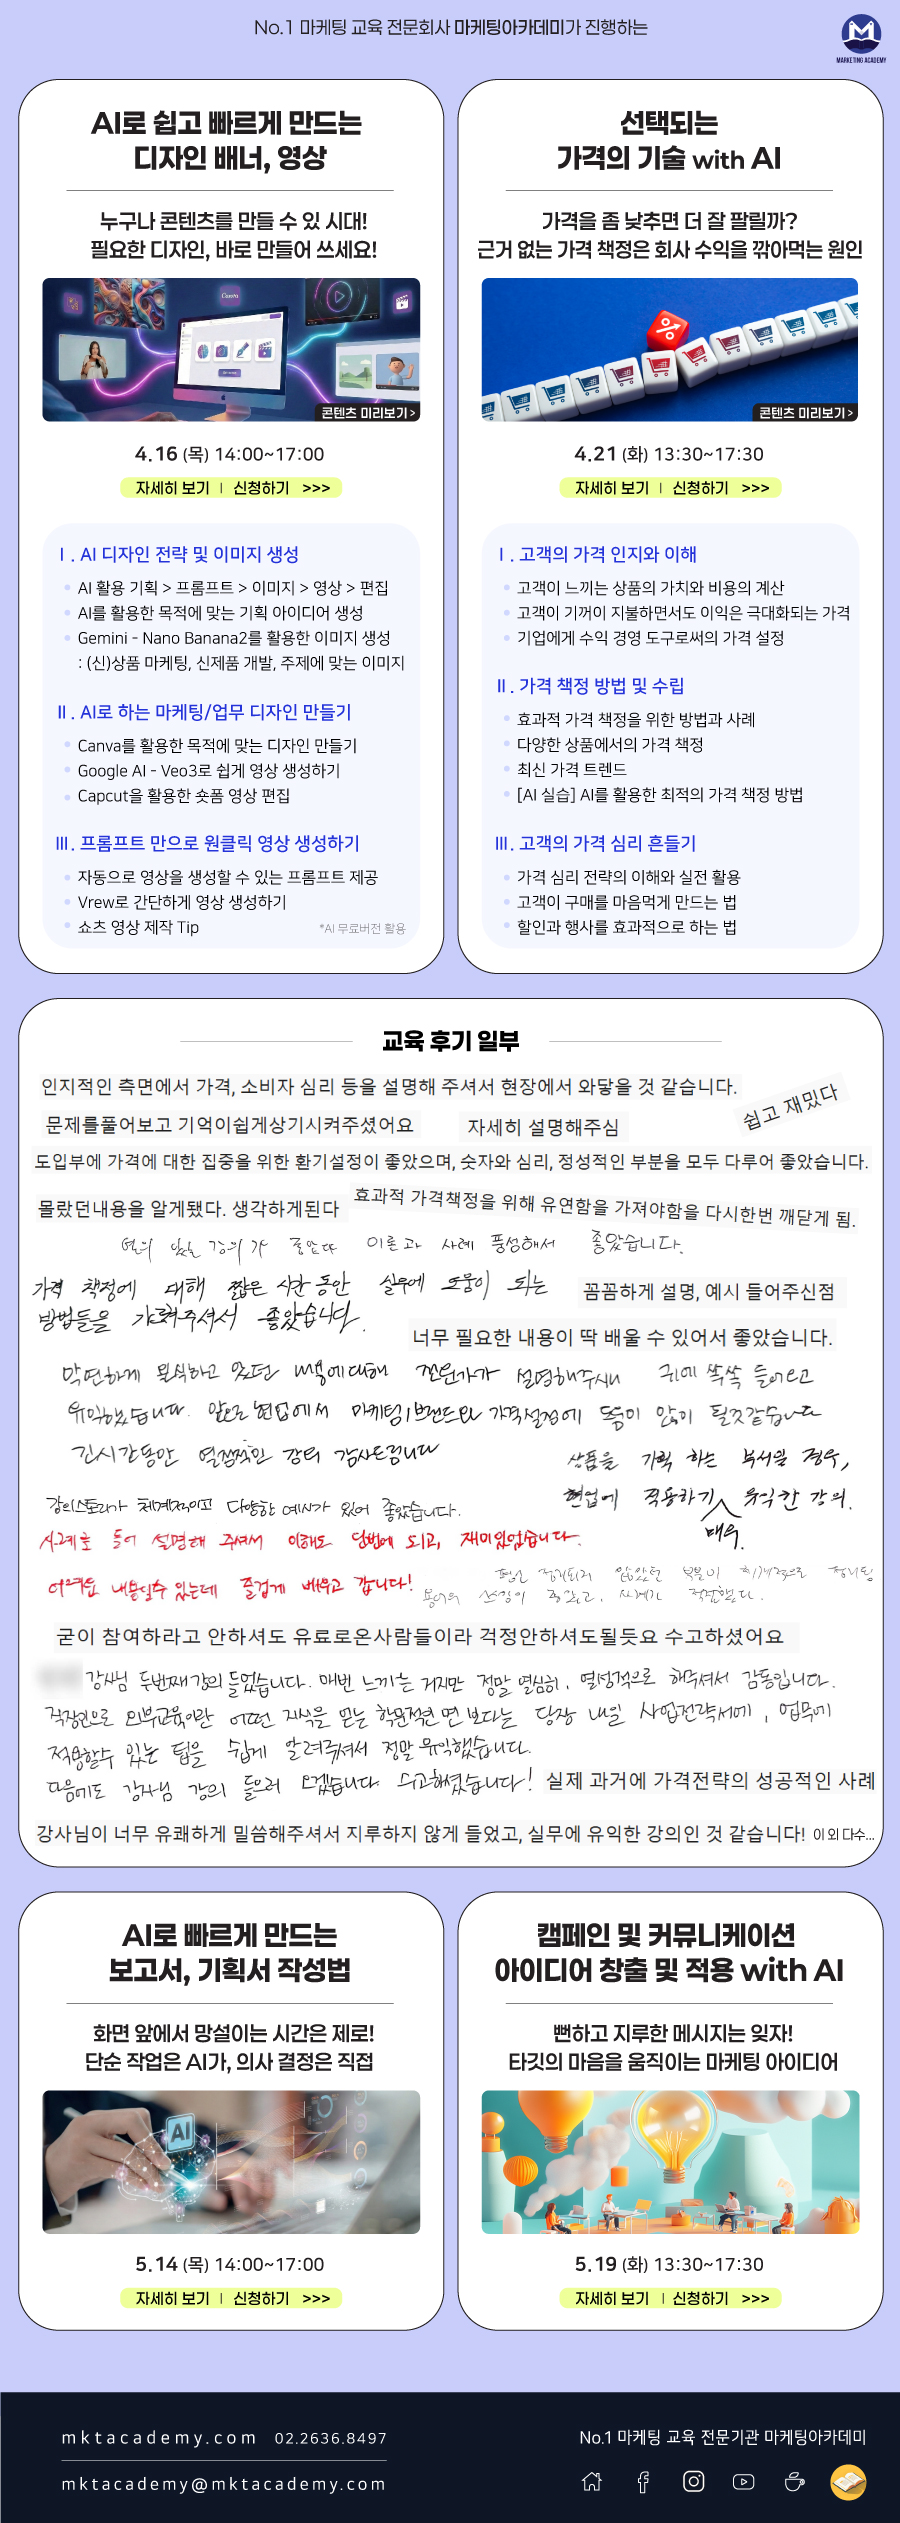 No.1 마케팅 교육 전문회사 마케팅아카데미가 진행하는
MARKETING ACADEMY
AI로 쉽고 빠르게 만드는
디자인 배너, 영상
누구나 콘텐츠를 만들 수 있 시대!
필요한 디자인, 바로 만들어 쓰세요!
Canva
콘텐츠 미리보기 >
4.16 (목) 14:00~17:00
자세히 보기 | 신청하기 >>>
Ⅰ. AI 디자인 전략 및 이미지 생성
AI 활용 기획 > 프롬프트 > 이미지 > 영상 > 편집
AI를 활용한 목적에 맞는 기획 아이디어 생성
Gemini - Nano Banana2를 활용한 이미지 생성
: (신)상품 마케팅, 신제품 개발, 주제에 맞는 이미지
Ⅱ. AI로 하는 마케팅/업무 디자인 만들기
Canva를 활용한 목적에 맞는 디자인 만들기
Google AI - Veo3로 쉽게 영상 생성하기
Capcut을 활용한 숏폼 영상 편집
Ⅲ. 프롬프트 만으로 원클릭 영상 생성하기
자동으로 영상을 생성할 수 있는 프롬프트 제공
Vrew로 간단하게 영상 생성하기
쇼츠 영상 제작 Tip
*AI 무료버전 활용
선택되는
가격의 기술 with AI
가격을 좀 낮추면 더 잘 팔릴까?
근거 없는 가격 책정은 회사 수익을 깎아먹는 원인
콘텐츠 미리보기 >
4.21 (화) 13:30~17:30
자세히 보기 | 신청하기 >>>
Ⅰ. 고객의 가격 인지와 이해
고객이 느끼는 상품의 가치와 비용의 계산
고객이 기꺼이 지불하면서도 이익은 극대화되는 가격
기업에게 수익 경영 도구로써의 가격 설정
Ⅱ. 가격 책정 방법 및 수립
효과적 가격 책정을 위한 방법과 사례
다양한 상품에서의 가격 책정
최신 가격 트렌드
[AI 실습] AI를 활용한 최적의 가격 책정 방법
Ⅲ. 고객의 가격 심리 흔들기
가격 심리 전략의 이해와 실전 활용
고객이 구매를 마음먹게 만드는 법
할인과 행사를 효과적으로 하는 법
교육 후기 일부
인지적인 측면에서 가격, 소비자 심리 등을 설명해 주셔서 현장에서 와닿을 것 같습니다.
쉽고 재밌다
문제를풀어보고 기억이쉽게상기시켜주셨어요
자세히 설명해주심
도입부에 가격에 대한 집중을 위한 환기설정이 좋았으며, 숫자와 심리, 정성적인 부분을 모두 다루어 좋았습니다.
몰랐던내용을 알게됐다. 생각하게된다
효과적 가격책정을 위해 유연함을 가져야함을 다시한번 깨닫게 됨.
열의 있는 강의가 좋았다
이론과 사례 풍성해서 좋았습니다.
가격 책정에 대해 짧은 시간 동안 실무에 도움이 되는
방법들을 가르쳐주셔서 좋았습니다.
꼼꼼하게 설명, 예시 들어주신점
너무 필요한 내용이 딱 배울 수 있어서 좋았습니다.
막연하게 인식하고 있던 내용에 대해 전문가가 설명해주시니 귀에 쏙쏙 들어오고
유익했습니다. 앞으로 현업에서 마케팅/브랜드와 가격설정에 도움이 많이 될것같습니다
긴시간동안 열정적인 강의 감사드립니다
상품을 기획 하는 부서일 경우,
현업에 적용하기 매우 유익한 강의.
강의스토리가 체계적이고 다양한 예시가 있어 좋았습니다.
사례를 들어 설명해 주셔서 이해도 단번에 되고, 재미있었습니다.
어려운 내용일수 있는데 즐겁게 배우고 갑니다!
평소 정리되지 않았던 부분이 체계적으로 정리됨
용어의 설명이 좋았고, 사례가 적절했다.
굳이 참여하라고 안하셔도 유료로온사람들이라 걱정안하셔도될듯요 수고하셨어요
강사님 두번째강의 들었습니다. 매번 느끼는 거지만 정말 열심히, 열성적으로 해주셔서 감동입니다.
직장인으로 외부교육이란 어떤 지식을 얻는 학문적인 면 보다는 당장 내일 사업전략서에, 업무에
적용할수 있는 팁을 쉽게 알려주셔서 정말 유익했습니다.
다음에도 강사님 강의 들으러 오겠습니다. 수고하셨습니다!
실제 과거에 가격전략의 성공적인 사례
강사님이 너무 유쾌하게 말씀해주셔서 지루하지 않게 들었고, 실무에 유익한 강의인 것 같습니다! 이 외 다수...
AI로 빠르게 만드는
보고서, 기획서 작성법
화면 앞에서 망설이는 시간은 제로!
단순 작업은 AI가, 의사 결정은 직접
AI
5.14 (목) 14:00~17:00
자세히 보기 | 신청하기 >>>
캠페인 및 커뮤니케이션
아이디어 창출 및 적용 with AI
뻔하고 지루한 메시지는 잊자!
타깃의 마음을 움직이는 마케팅 아이디어
5.19 (화) 13:30~17:30
자세히 보기 | 신청하기 >>>
mktacademy.com 02.2636.8497
mktacademy@mktacademy.com
No.1 마케팅 교육 전문기관 마케팅아카데미